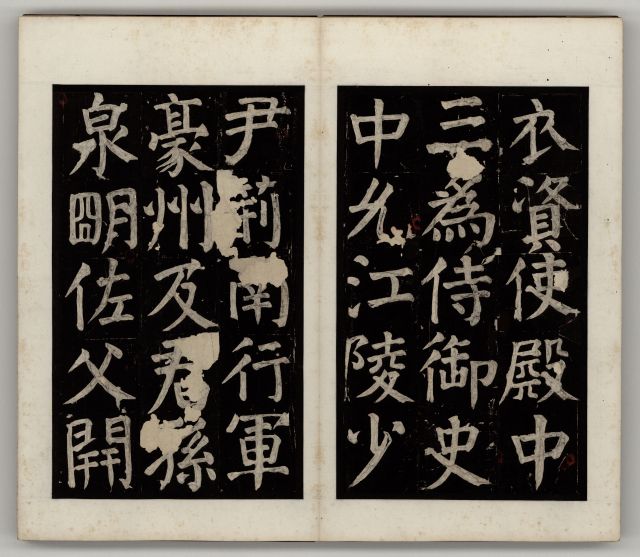 衣資使殿中
三為侍御史
中允江陵少
尹荊南行軍
豪州及君孫
泉朙佐父開